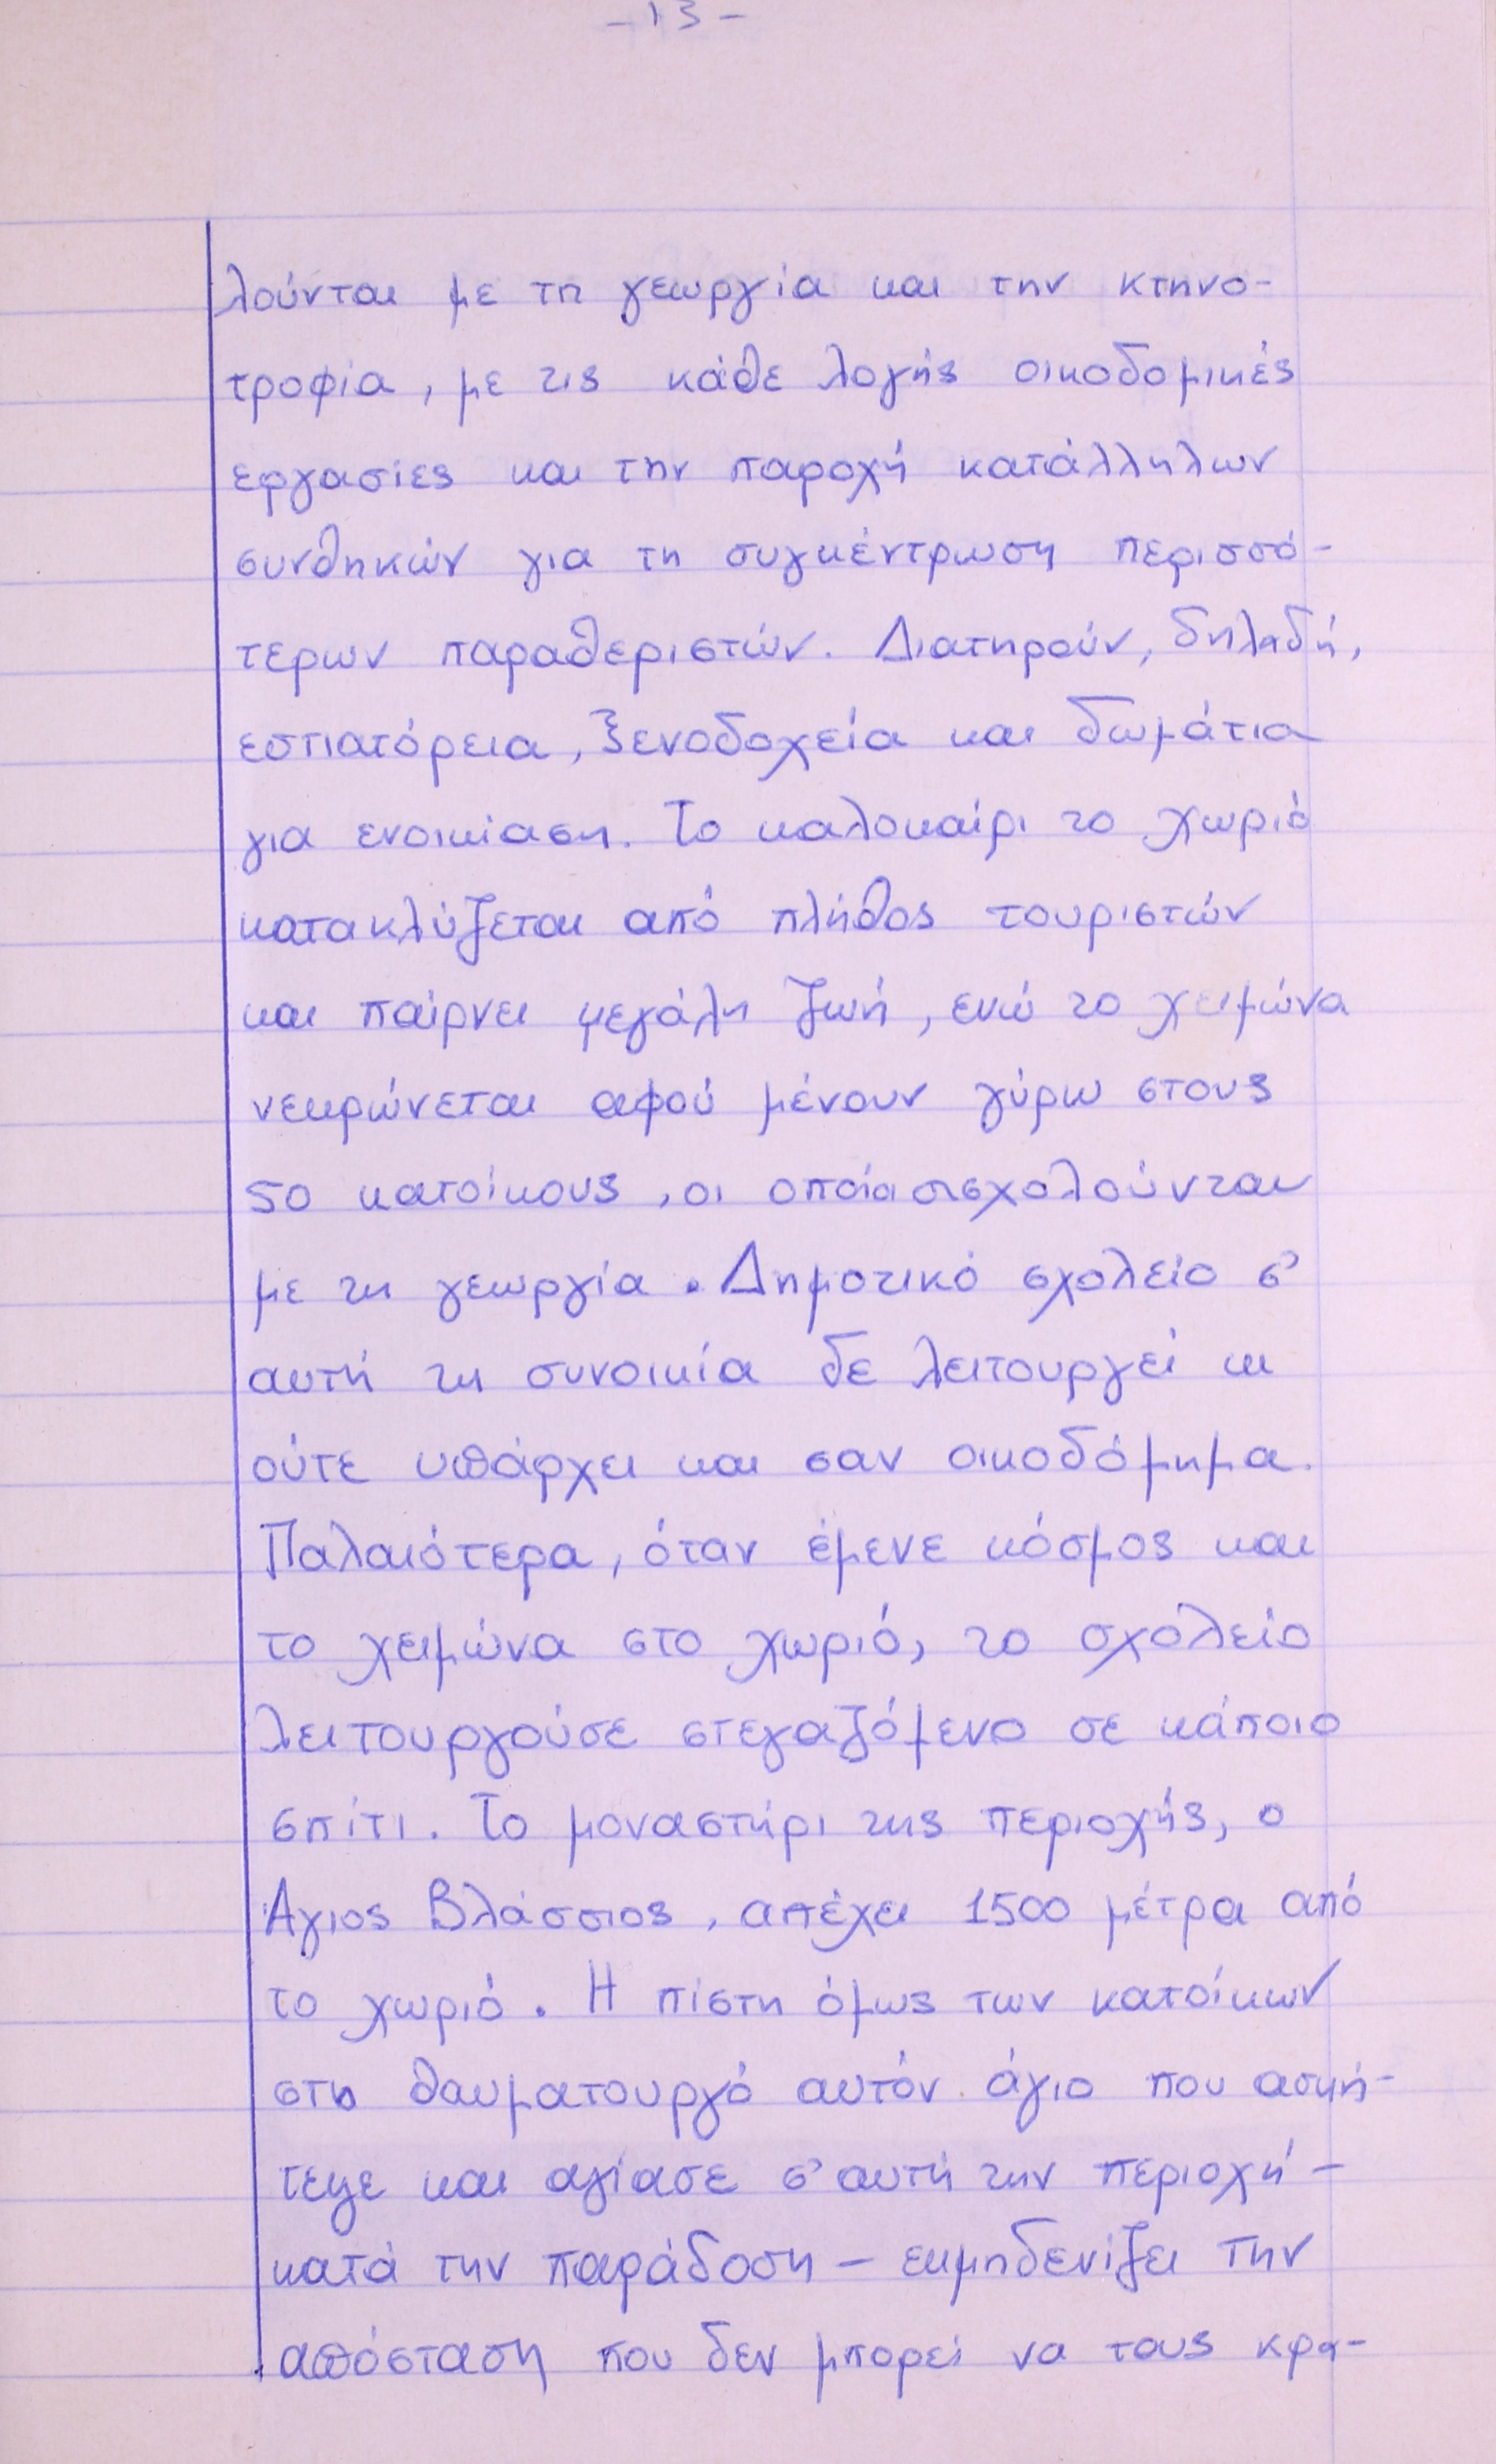 -13-
λούνται με τη γεωργία και την κτηνο-
τροφία, με τις κάθε λογής οικοδομικές
εργασίες και την παροχή κατάλληλων
συνθηκών για τη συγκέντρωση περισσό-
τερων παραθεριστών. Διατηρούν, δηλαδή,
εστιατόρεια, ξενοδοχεία και δωμάτια
για ενοικίαση. Το καλοκαίρι το χωριό
κατακλύζεται από πλήθος τουριστών
και παίρνει μεγάλη ζωή, ενώ το χειμώνα
νεκρώνεται αφού μένουν γύρω στους
50 κατοίκους, οι οποίοι ασχολούνται
με τη γεωργία. Δημοτικό σχολείο σ'
αυτή τη συνοικία δε λειτουργεί κι
ούτε υπάρχει και σαν οικοδόμημα.
Παλαιότερα, όταν έμενε κόσμος και
το χειμώνα στο χωριό, το σχολείο
λειτουργούσε στεγαζόμενο σε κάποιο
σπίτι. Το μοναστήρι της περιοχής, ο
Άγιος Βλάσσιος, απέχει 1500 μέτρα από
το χωριό. Η πίστη όμως των κατοίκων
στο θαυματουργό αυτόν άγιο που ασκή-
τεψε και αγίασε σ' αυτή την περιοχή -
κατά την παράδοση - εκμηδενίζει την
απόσταση που δεν μπορεί να τους κρα-